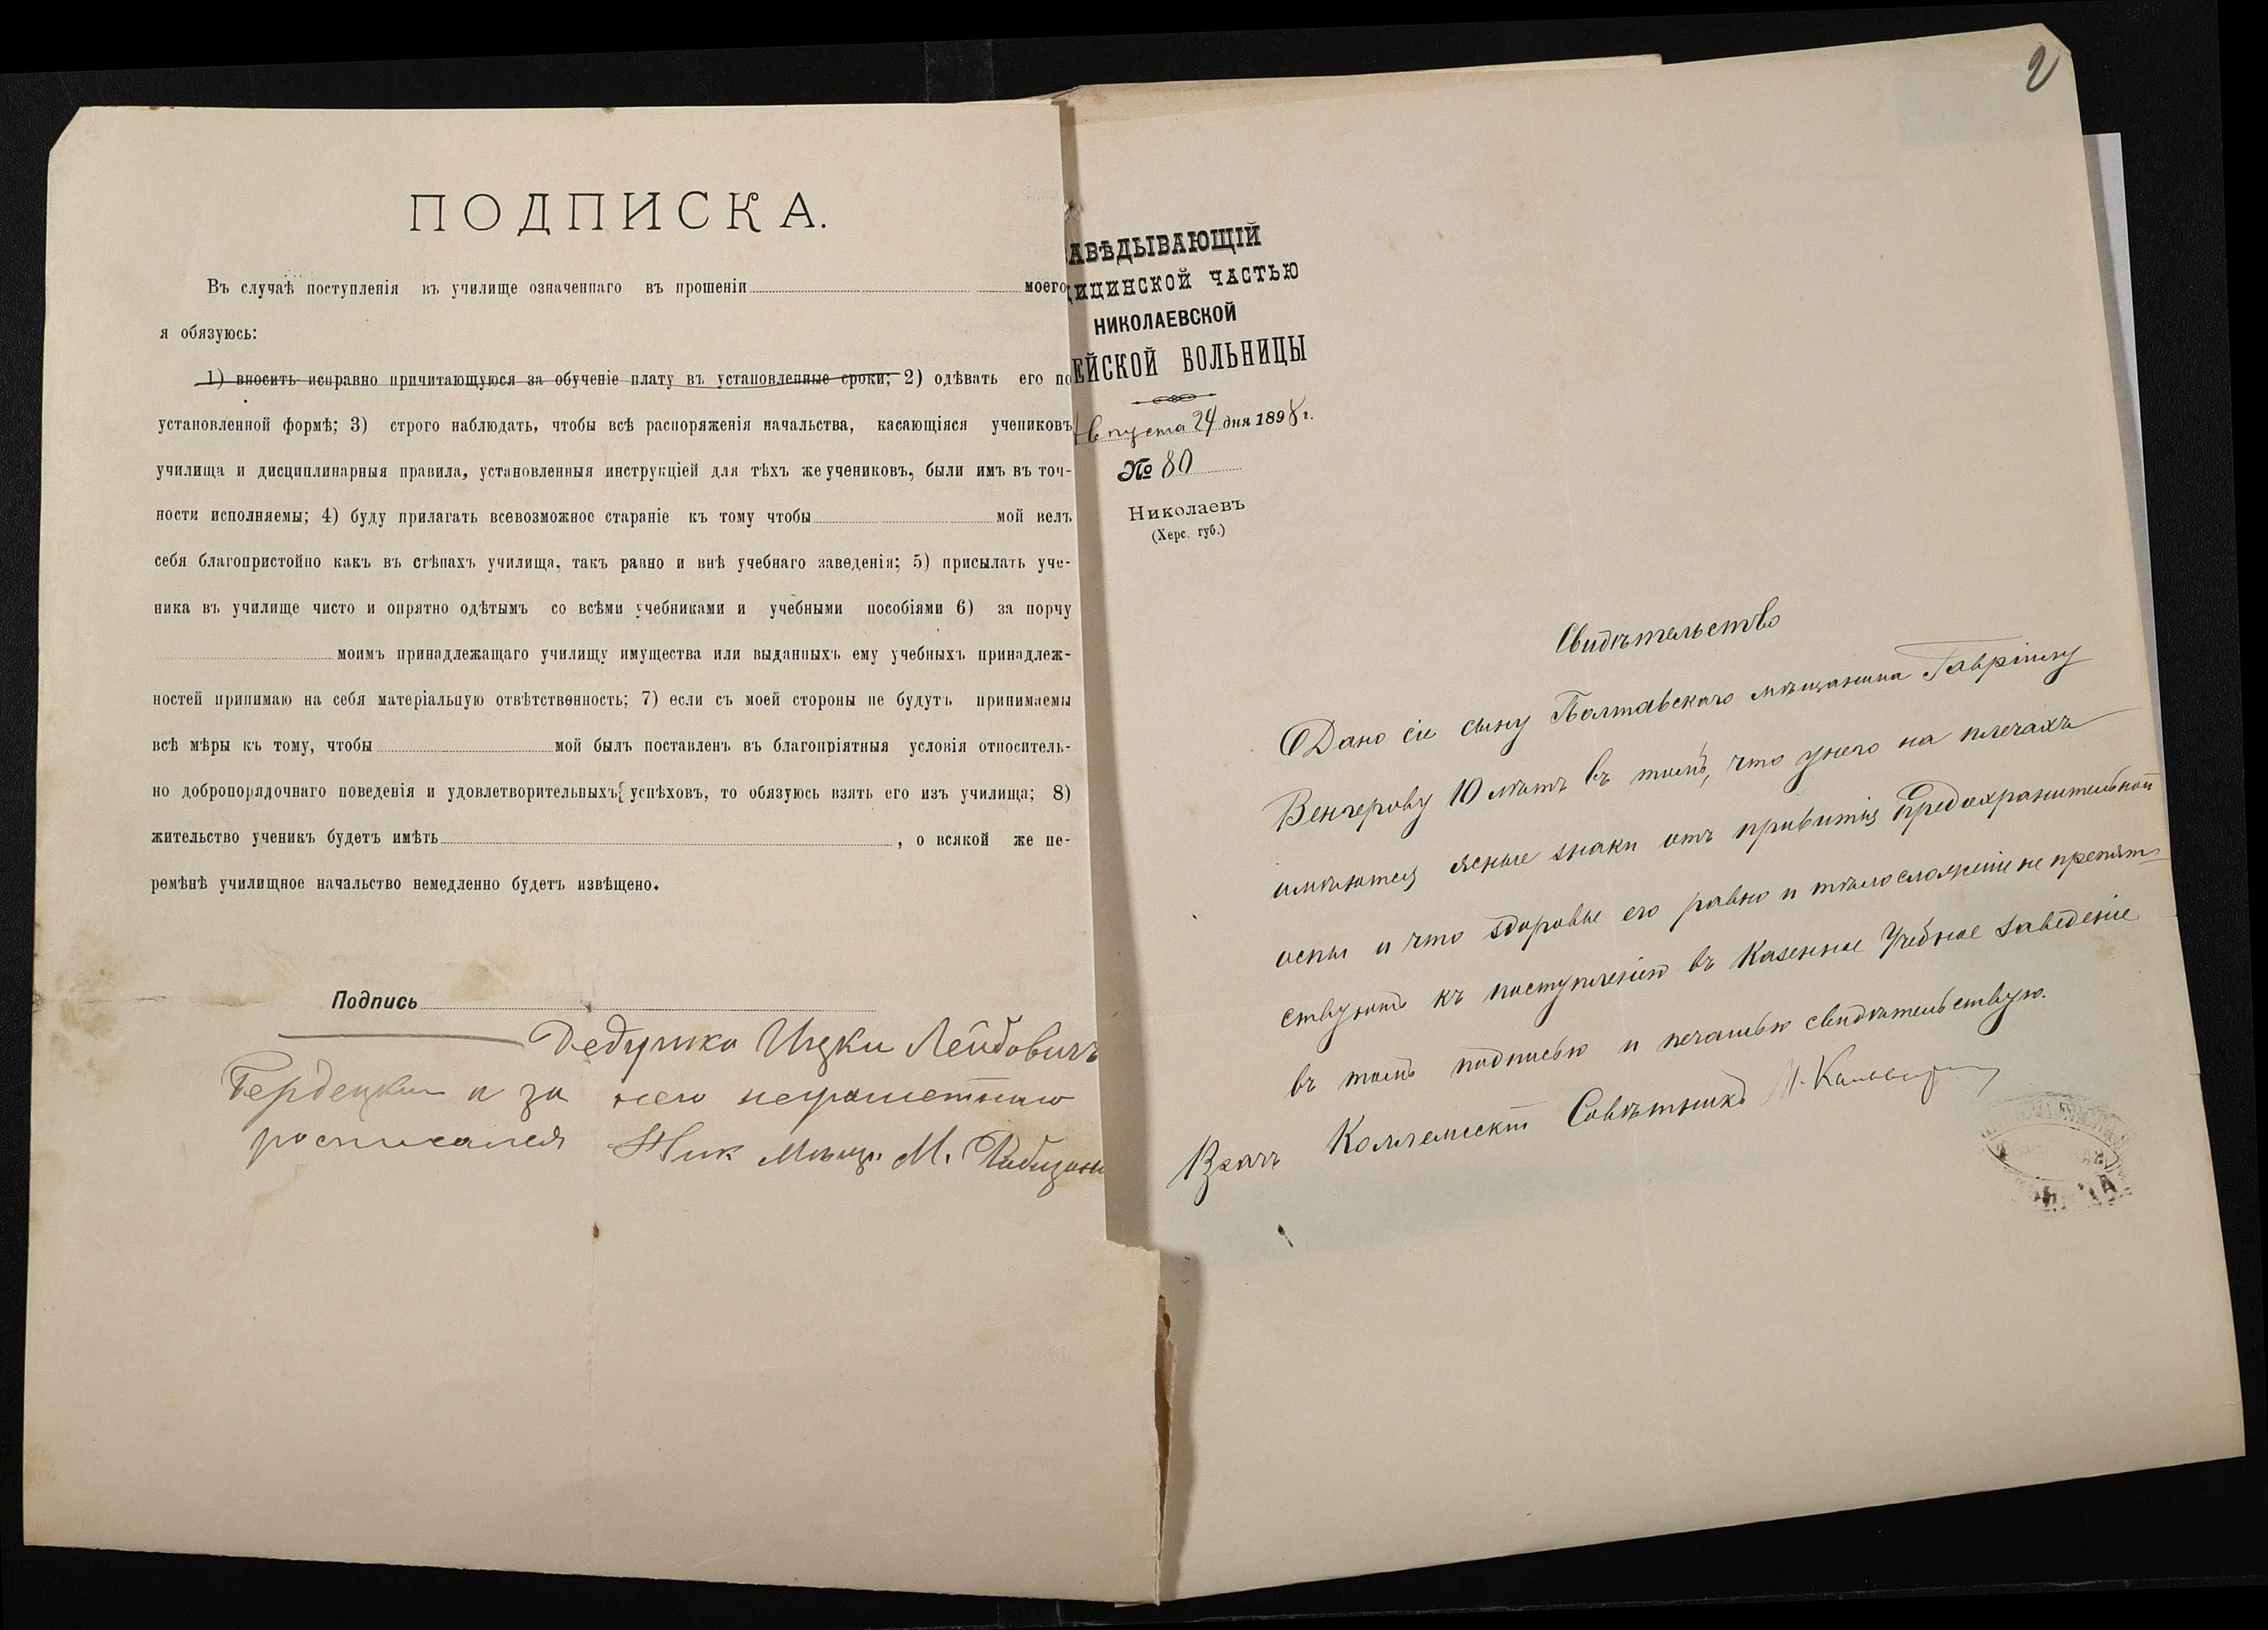 ПОДПИСКА.
Въ случаѣ поступленія въ училище означеннаго въ прошеніи моего
я обязуюсь:
1) вносить исправно причитающуюся за обученіе плату въ установленные сроки; 2) одѣвать его по
установленной формѣ; 3) строго наблюдать, чтобы всѣ распоряженія начальства, касающіяся учениковъ
училища и дисциплинарныя правила, установленныя инструкціей для тѣхъ же учениковъ, были имъ въ точ-
ности исполняемы; 4) буду прилагать всевозможное стараніе къ тому чтобы мой велъ
себя благопристойно какъ въ стѣнахъ училища, такъ равно и внѣ учебнаго заведенія; 5) присылать уче-
ника въ училище чисто и опрятно одѣтымъ со всѣми учебниками и учебными пособіями 6) за порчу
моимъ принадлежащаго училищу имущества или выданныхъ ему учебныхъ принадлеж-
ностей принимаю на себя матеріальную отвѣтственность; 7) если съ моей стороны не будутъ принимаемы
всѣ мѣры къ тому, чтобы мой былъ поставленъ въ благопріятныя условія относитель-
но добропорядочнаго поведенія и удовлетворительныхъ успѣховъ, то обязуюсь взять его изъ училища; 8)
жительство ученикъ будетъ имѣть , о всякой же пе-
ремѣнѣ училищное начальство немедленно будетъ извѣщено.
Подпись
Дедушка Ицки Лейбовичъ
а за него неграмотнаго
росписался Ник мѣщ. М.
2
АВѢДЫВАЮЩІЙ
ИЦИНСКОЙ ЧАСТЬЮ
НИКОЛАЕВСКОЙ
ЕЙСКОЙ БОЛЬНИЦЫ
Августа 24 дня 1898 г.
№ 80
Николаевъ
(Херс. губ.)
Свидѣтельство
Дано сіе сыну Полтавскаго мѣщанина Гавріилу
Венгерову 10 лѣтъ въ томъ, что у него на плечахъ
имѣются ясные знаки отъ привитія предохранительной
оспы и что здоровье его равно и тѣлосложеніе не препят-
ствуютъ къ поступленію въ Казенное Учебное заведеніе
въ томъ подписью и печатью свидѣтельствую.
Врачъ Коллежскій Совѣтникъ